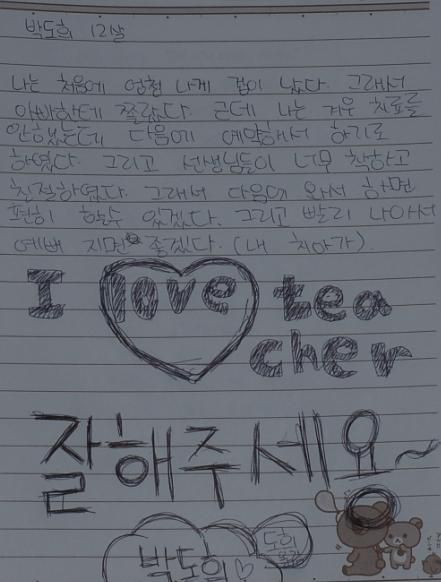 박도희 12살
나는 처음에 엄청 나게 겁이 났다. 그래서
아빠한테 쫄랐다. 근데 나는 겨우 치료를
안했는데 다음에 예약해서 하기로
하였다. 그리고 선생님들이 너무 착하고
친절하였다. 그래서 다음에 와서 하면
편히 할수 있겠다. 그리고 빨리 나아서
예뻐 지면 좋겠다. (내 치아가).
I love tea
cher
잘해주세요~
박도희♡
도희